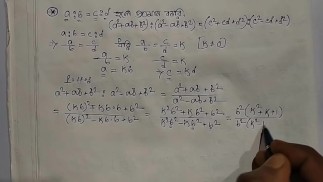 a:b = c:d হলে প্রমাণ করো
(a²+ab+b²):(a²-ab+b²) = (c²+cd+d²):(c²-cd+d²)
a:b = c:d
⇒ a/b = c/d ধরি a/b = c/d = K [K≠0]
∴ a/b = K ∴ c/d = K
⇒ a = Kb ⇒ c = Kd
a²+ab+b² : a²-ab+b² = (a²+ab+b²)/(a²-ab+b²)
= ((Kb)²+Kb·b+b²)/((Kb)²-Kb·b+b²) = (K²b²+Kb²+b²)/(K²b²-Kb²+b²) = b²(K²+K+1)/b²(K²